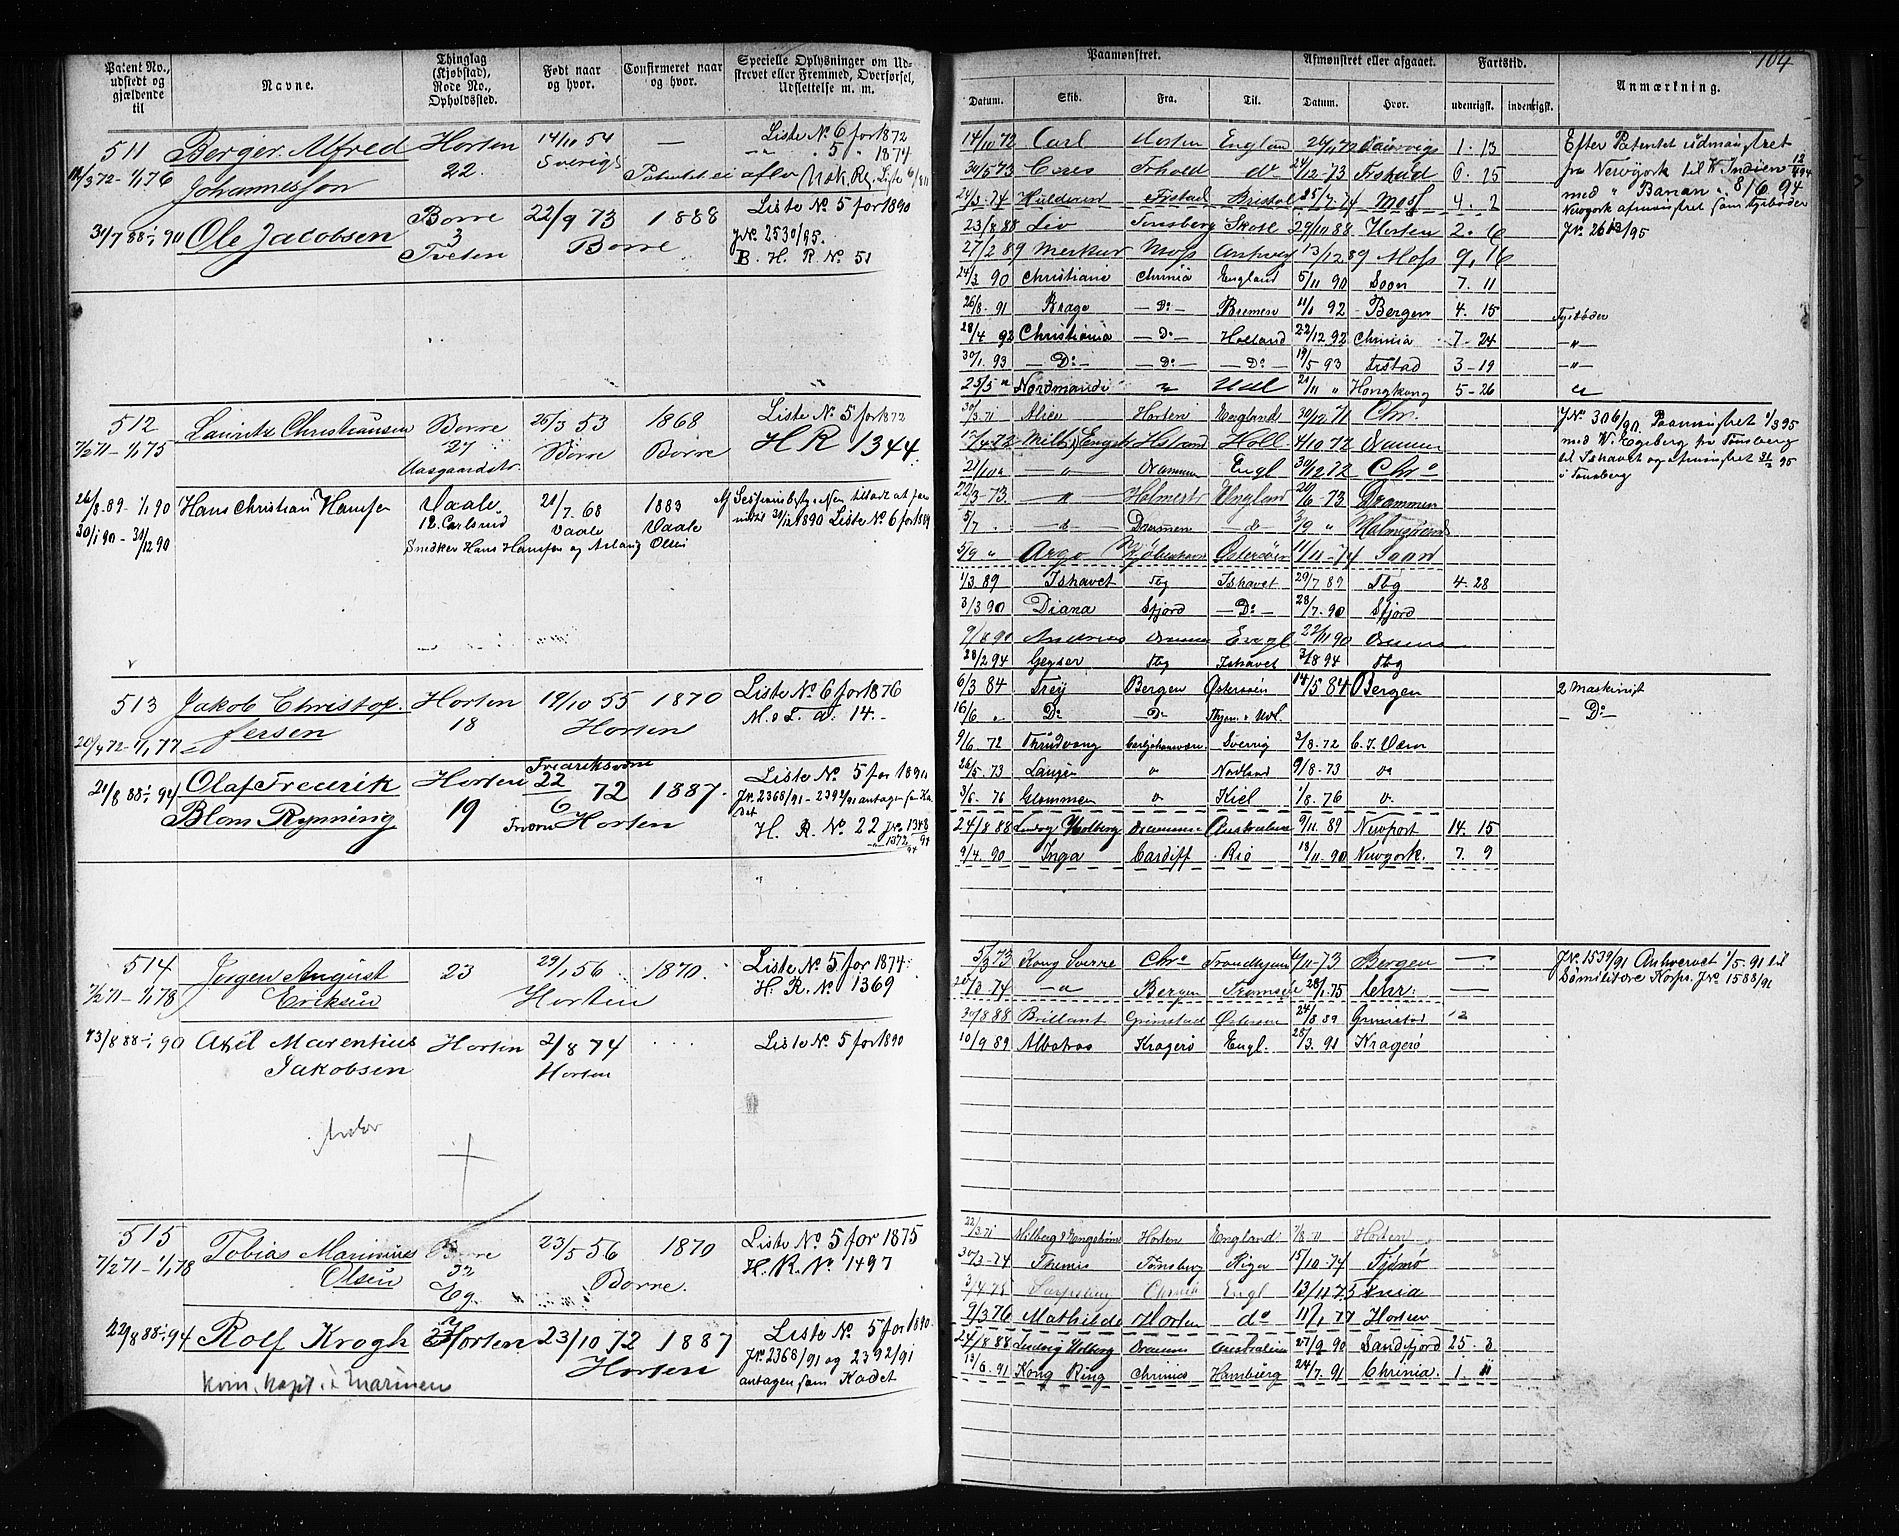 Patent No., udstedt og gjældende til
Navne.
Thinglag (Kjøbstad), Rode No., Opholdssted.
Født naar og hvor.
Confirmeret naar og hvor.
Specielle Oplysninger om Udskrevet eller Fremmed, Overførsel, Udslettelse m. m.
511 Berger. Alfred Horten 14/10 54 — Liste No 6 for 1872
22. Sverige " 5 " 1874
Johannesson
31/7 88 - 1/1 90 Ole Jacobsen Borre 22/9 73 1888 Liste No 5 for 1890
3 Borre JNo 2530/95.
Tveten B. H. R. No 51
512 Lauritz Christiansen Borre 25/3 53 1868 Liste No 5 for 1872
7/2 71 - 1/1 75 27 Borre Borre H R 1344
Aasgaardstr.
26/8 89 - 1/1 90 Hans Christian Hansen Vaale 21/7 68 1883
30/1 90 - 31/12 90 12. Carlsrud Vaale Vaale 1890 Liste No 6 for 1889
Snedker Hans Hansen og Aslaug Olsen
513 Jakob Christof- Horten 19/10 55 1870 Liste No 6 for 1876
20/4 72 - 1/1 77 fersen 18 Horten M. s L. a: 14.
21/8 88 - 1/1 94 Olaf Frederik Horten Fredriksværn 22/6 72 1887 Liste No 5 for 1890
Blom Rynning 19 Horten JNo. 2368/91 - 2392/91 antagen som Kadet
H. R. No 22 JNo 1348
1872/94
514 Jørgen August 23 29/1 56 1870. Liste No 5 for 1874
7/2 71 - 1/1 78 Eriksen Horten H. R. No 1369
23/8 88 - 1/1 90 Axel Marentius Horten 2/8 74 Liste No 5 for 1890
Jakobsen Horten
515 Tobias Marinius Borre 23/5 56 1870 Liste No 5 for 1875
7/2 71 - 1/1 78 Olsen Borre H. R. No 1497
Eg.
22/8 88 - 1/1 94 Rolf Krogh 23 Horten 23/10 72 1887 Liste No 5 for 1890
Horten JNo 2368/91 og 2392/91
antagen som Kadet
kom. kapt. i marinen
104
Paamønstret.
Afmønstret eller afgaaet.
Fartstid.
Anmærkning.
Datum. Skib. Fra. Til. Datum. Hvor. udenrigsk. indenrigsk.
14/10 72 Carl Horten England 24/11 72 Laurvig 1 - 13 Efter Patentet udmønstret
30/5 73 Ceres Frhald do 24/12 - 73 Frstad 6 - 25 fra Newyork til W. Indien 12/4 94
24/3 - 74 Hulderen Frstad Bristol 25/7 - 74 Moss 4 - 2 med "Baran" 8/6 94
Newyork afmønstret som tysbøder
23/8 88 Liv Tønsberg Skotl 29/10 88 Horten 2. 6 JNo 2613/95
27/2 89 Merkur Moss Antwerp 13/12 89 Moss 9, 16
24/3 90 Christiane Chrinia England 5/11 90 Soon 7. 11
26/8 - 91 Brage — Do — Bremen 11/1 92 Bergen 4. 15 Tysbøder
28/4 92 Christiania — Do — Holland 22/12 92 Chrinia 7 - 24 — " —
30/1. 93 — Do — — Do — — Do — 19/5 - 93 Frstad 3 - 19 — " —
25/5 " Nordmandi " Udl 21/11 " Hongkong 5 - 26
30/3 71 Alice Horten England 30/12 71 Chr. JNo 306/90. Paamønstret 1/3 95
Holl 4/10 72 Drammen med W. Egeberg fra Tønsberg
21/10 " — " — Drammen Engl 30/12 72 Chra til Ishavet og afmønstret 31/7 95
22/3 - 73. — " — Holmestr England 20/6 - 73 Drammen i Tønsberg
5/7 — " — Drammen — d — 3/9 " Holmestrand
5/9 " Argo Kjøbenhavn Østersøen 11/11 - 74 Soon
1/3 89 Ishavet Tbg Ishavet 29/7 89 Tbg 4 - 28
3/3 90 Diana Sfjord — Do — 28/7 - 90 Sfjord
9/8 90 Andreas Drammen Engl 22/11 90 Drammen
28/2 94 Geyser Tbg Ishavet 3/8 94 Tbg
6/3 84 Frey Bergen Østersøen 14/5 84 Bergen 2 Maskinist
16/6 " Do — Do — — Do —
9/6. 72 Thrudvang Carljohansværn Sverrig 2/8 - 72 C. J. Værn
26/5 - 73 Laugen " Nordland 9/8 - 73 "
3/6 - 76 Glommen " Kiel 1/8 - 76 "
24/8 88 Ludvig Holberg Drammen Australien 9/11 - 89 Newport 14. 15
9/4. 90 Inga Cardiff Rio 18/11 - 90 Newyork. 7. 9
5/3 73 Kong Sverre Chra Trondhjem 6/11 - 73 Bergen — JNo 1539/91 Anhvervet 1/5 - 91 til
— " — Bergen Tromsø 28/1 - 75 Chr: — Sømilitære Korps. JNo 1588/91
30/8 88 Brillant Grimstad Østersøen 24/8 89 Grimstad 12
10/9 89 Albatros Kragerø Engl. 25/3. 91 Kragerø
22/3 71 Milberg & Engstrøm Horten England 7/8 - 71 Horten
30/3 - 74 Themis Tønsberg Riga 15/10 - 74 Tjømø
3/4 - 75 Sarpsborg Chrinia Engl 13/11 75 Xnia
9/3 76 Mathilde Horten do 11/1 77 Horten
24/8 88 Ludvig Holberg Drammen Australien 27/9 90 Sandefjord 25. 3
12/6 - 91 Kong Ring Chrinia Hamburg 24/7. 91 Chrinia. 1. 11